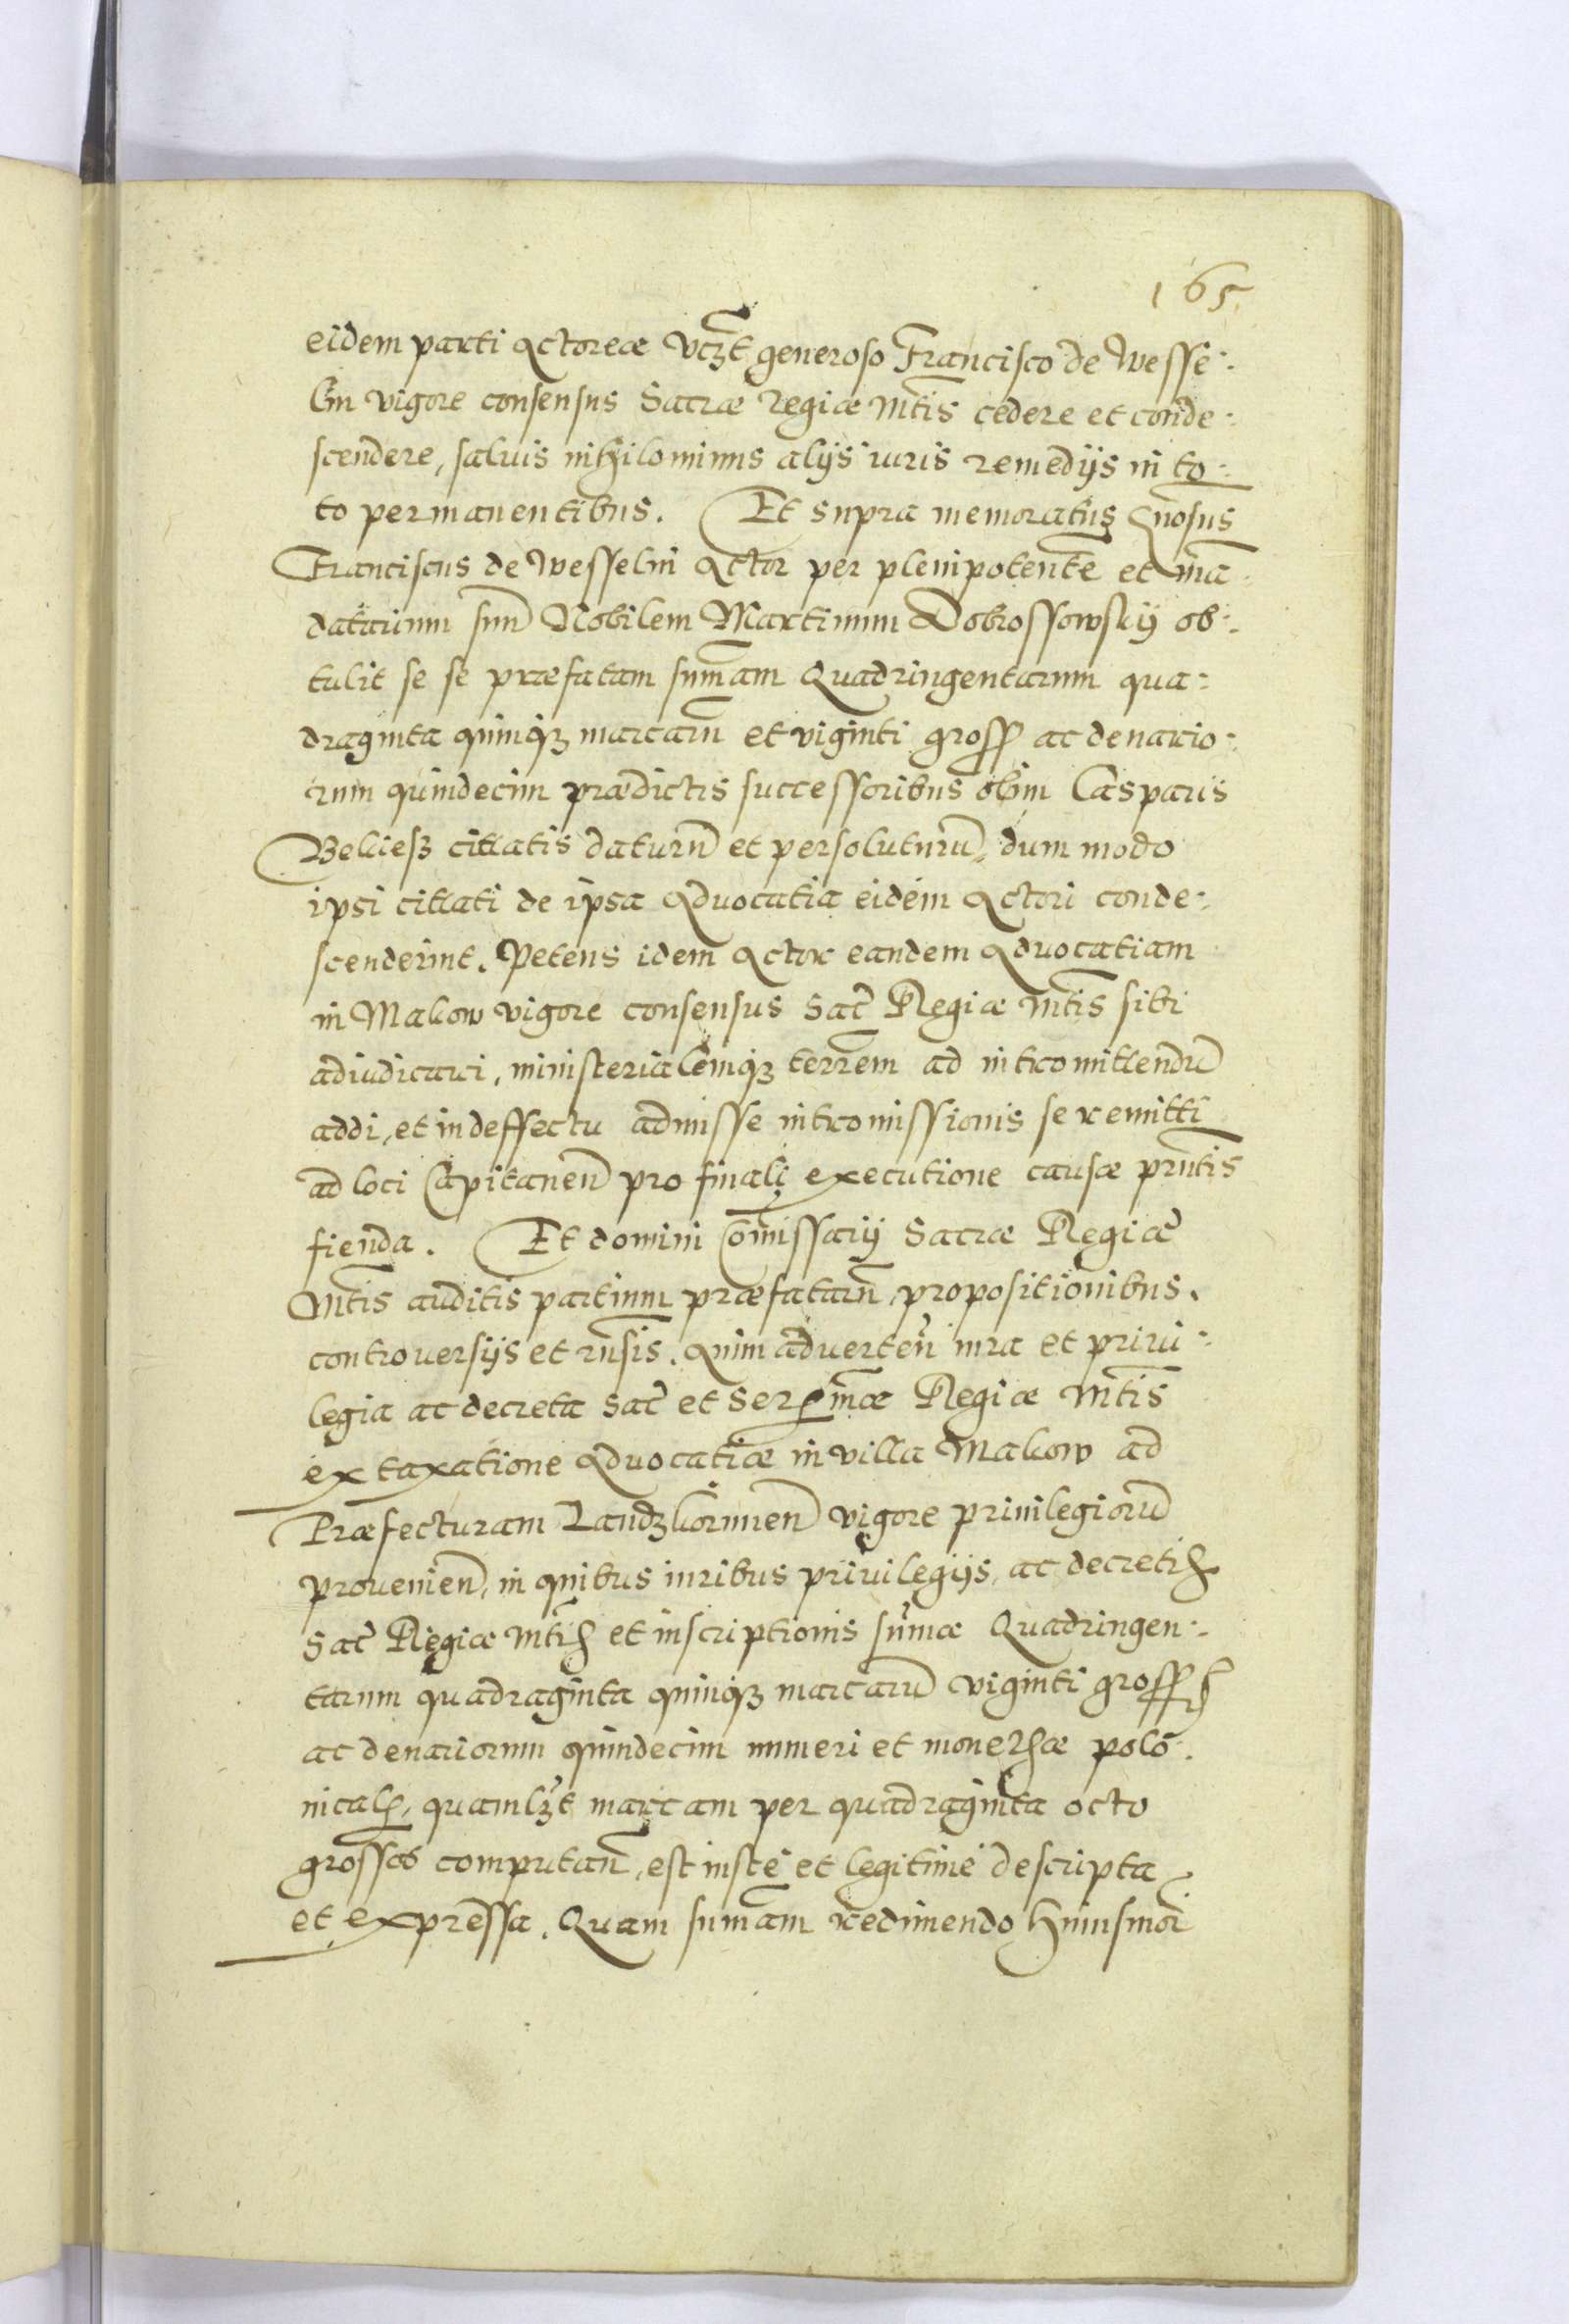 165
eidem parti Actoreæ vczt generoso Francisco de Wesse:
lin vigore consensus Sacræ Regiæ Mtis cedere et conde:
scendere, saluis nihilominus alijs iuris remedijs in to:
to permanentibus. Et supra memoratus Gnosus
Franciscus de Wesselin Actor per plenipotente et man
datarium suu Nobilem Martinum Dobrossowskij ob:
tulit se se præfatam sumam Quadringentarum qua:
draginta quinqz marcaru et viginti gross ac denario:
rum quindecim prædictis successoribus olim Casparis
Beliesz citatis daturu et persoluturu, dum modo
ipsi citati de ipsa Aduocatia eidem Actori conde:
scenderint. Petens idem Actor eandem Aduocatiam
in Makow vigore consensus Sac Regiæ Mtis sibi
adiudicari, ministerialemqz terrem ad intromittendu
addi, et in deffectu admissæ intromissionis se remitti
ad loci Capitaneu pro finali executione causæ pntis
fienda. Et domini Comissarij Sacræ Regiæ
Mtis auditis partium præfataru propositionibus,
controuersijs et rnsis. Quim aduerten iura et priui:
legia ac decreta Sac et Serenmæ Regiæ Mtis
ex taxatione Aduocatiæ in villa Makow ad
Præfecturam Landzkorunen vigore priuilegioru
prouenien, in quibus iuribus priuilegijs, ac decretis
Sac Regiæ Mtis et inscriptionis sumæ Quadringen:
tarum quadraginta quinqz marcaru viginti gross
ac denariorum quindecim numeri et monethæ polo:
nicalis, quamlzt marcam per quadraginta octo
grossos computan, est iuste et legitime descripta
et expressa. Quam sumam redimendo huiusmoi